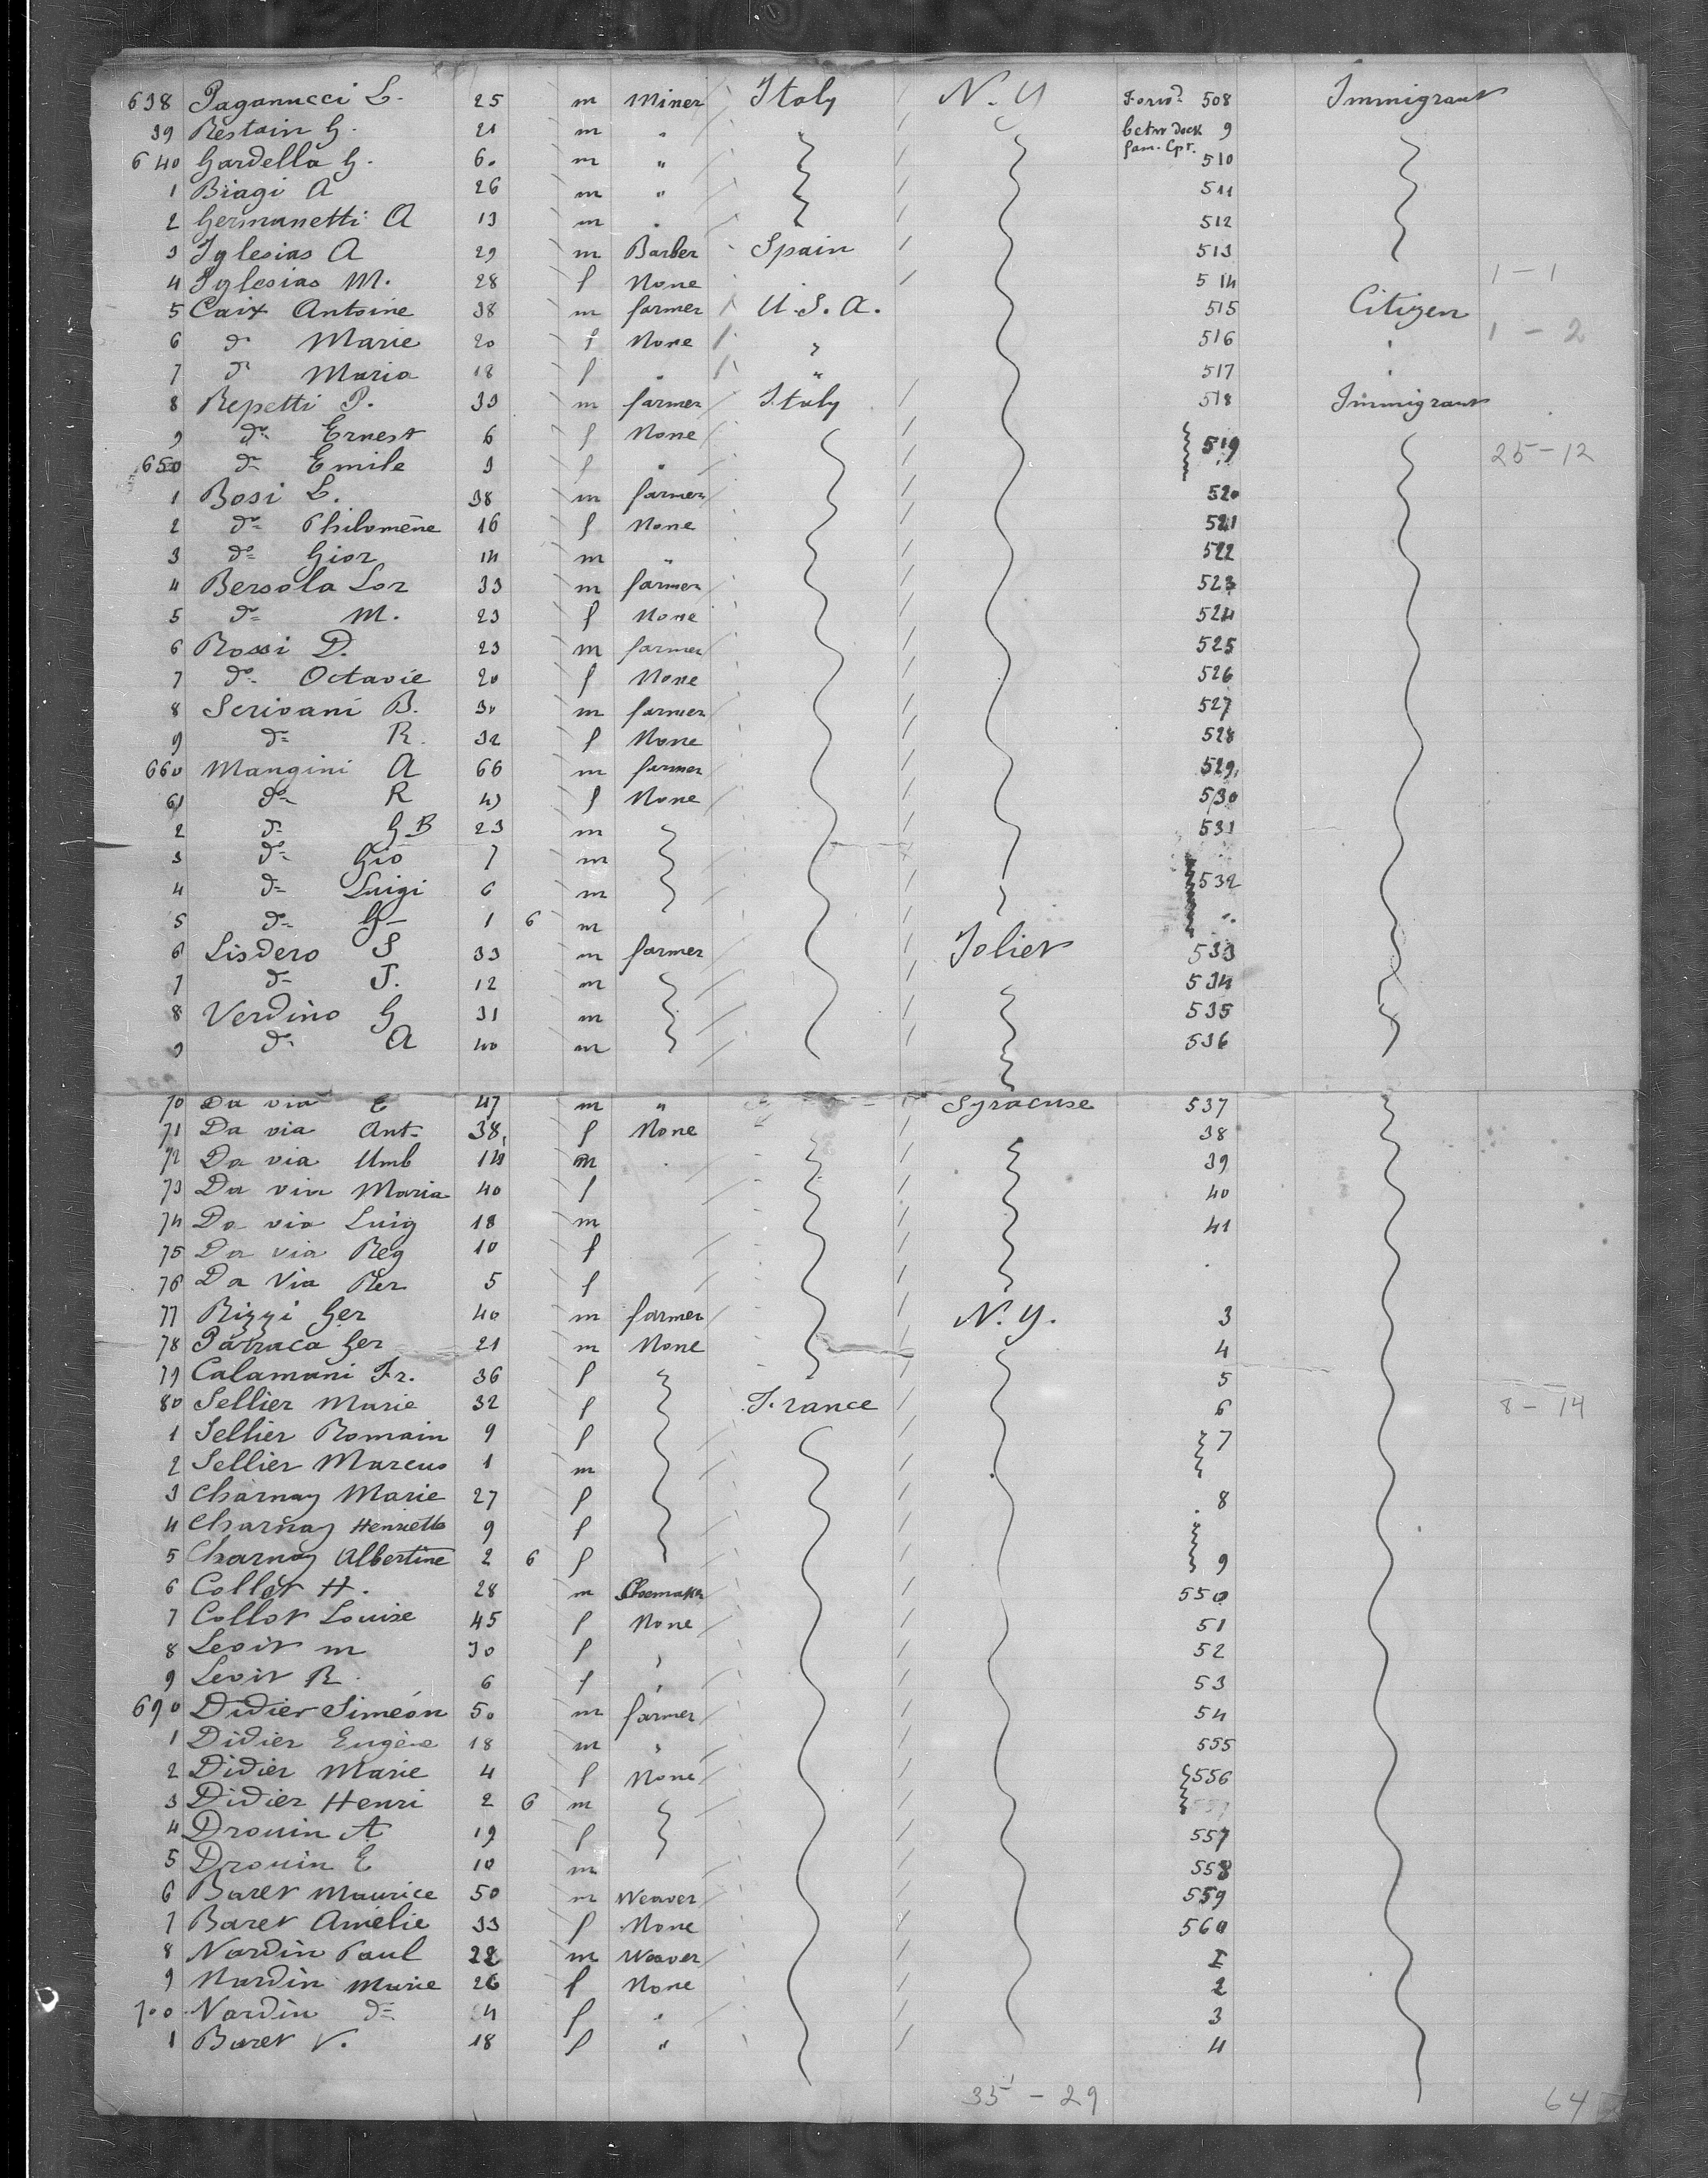 638 Paganucci L. 25 m Miner Italy N.Y Forwd 508 Immigrant
39 Restain G. 21 m " betw Deck 9
640 Gardella G. 60 m " 510
1 Biagi A 26 m " 511
2 Germanetti A 13 m " 512
3 Iglesias A 29 m Barber Spain 513
4 Iglesias M. 28 f None 514 1-1
5 Caix Antoine 38 m farmer U.S.A. 515 Citizen
6 do Marie 20 f None " 516 " 1-2
7 do Maria 18 f " " 517 "
8 Repetti P. 33 m farmer Italy 518 Immigrant
9 do Ernest 6 f None 519 25-12
650 do Emile 3 f "
1 Bosi L. 38 m farmer 520
2 do Philomène 16 f None 521
3 do Gior 14 m " 522
4 Bersola Lor 33 m farmer 523
5 do M. 23 f None 524
6 Rossi D. 23 m farmer 525
7 do Octavie 20 f None 526
8 Scrivani B. 30 m farmer 527
9 do R. 32 f None 528
660 Mangini A 66 m farmer 529
61 do R 43 f None 530
2 do G.B 23 m 531
3 do Gio 7 m
4 do Luigi 6 m 532
5 do G- 1 6 m
6 Lisdero S 33 m farmer Joliet 533
7 do J. 12 m 534
8 Verdino G 31 m 535
9 do A 40 m 536
70 Da via E 47 m " Syracuse 537
71 Da via Ant- 38 f None 38
72 Da via Umb 14 m 39
73 Da via Maria 40 f 40
74 Da via Luig 18 m 41
75 Da via Reg 10 f
76 Da Via Per 5 f
77 Rizzi Ger 40 m farmer N.Y. 3
78 Parraca Ger 21 m None 4
79 Calamani Fr. 36 f 5
80 Sellier Marie 32 f France 6 8-14
1 Sellier Romain 9 f 7
2 Sellier Marcus 1 m
3 Charnay Marie 27 f 8
4 Charnay Henrietta 9 f
5 Charnay Albertine 2 6 f 9
6 Collot H. 28 m Shoemaker 550
7 Collot Louise 45 f None 51
8 Levit m 30 f " 52
9 Levit R 6 f " 53
690 Didier Siméon 50 m farmer 54
1 Didier Eugène 18 m " 555
2 Didier Marie 4 f None 556
3 Didier Henri 2 6 m
4 Drouin A 19 f 557
5 Drouin E 10 m 558
6 Baret Maurice 50 m Weaver 559
7 Baret Amélie 33 f None 560
8 Nardin Paul 22 m Weaver 1
9 Nardin Marie 26 f None 2
700 Nardin do 4 f " 3
1 Baret V. 18 f " 4
35-29 64